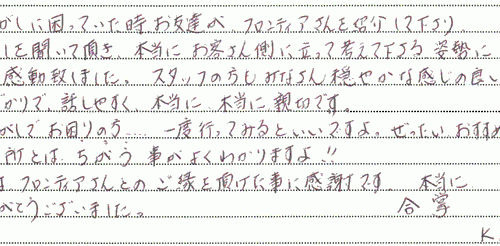 がしに困っていた時お友達が、フロンティアさんを紹介して下さり
しを聞いて頂き、本当にお客さん側に立って考えて下さる姿勢に
感動致しました。スタッフの方もみなさん穏やかな感じの良い
ばかりで、話しやすく、本当に、本当に親切です。
がしでお困りの方……一度行ってみるといいですよ。ぜったいおすすめ
所とは、ちがう事がよくわかりますよ!!
フロンティアさんとのご縁を頂けた事に感謝です 本当に
がとうございました。 合掌
K.